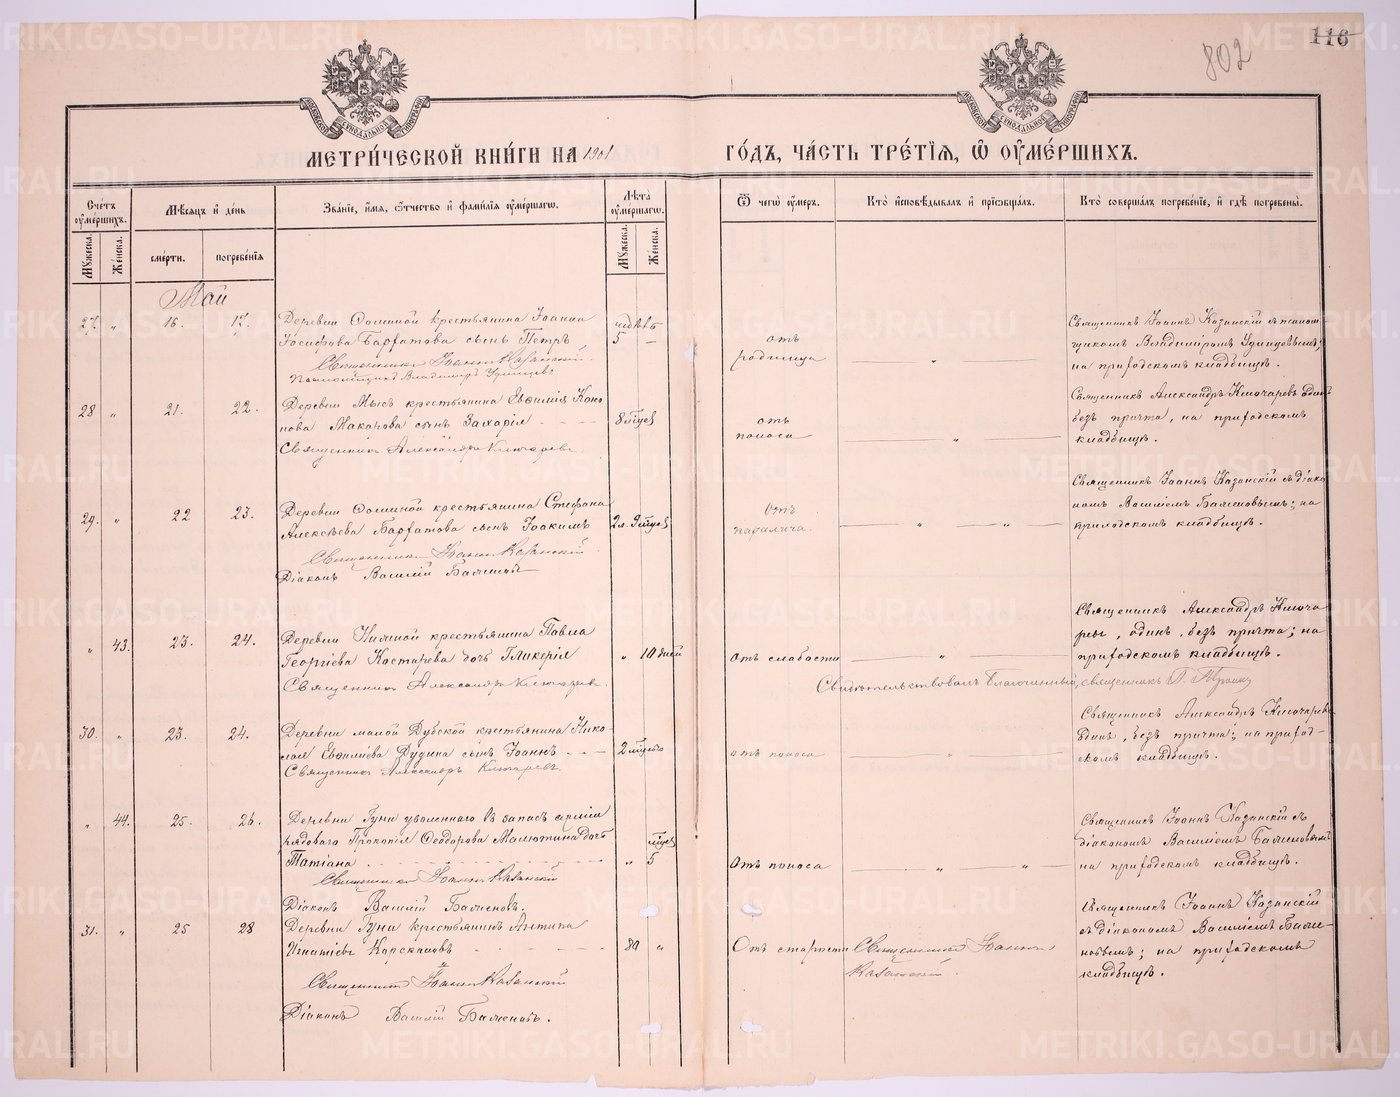 802
116
МЕТРИ́ЧЕСКОЙ КНИ́ГИ НА 1901
ГО́ДЪ, ЧА́СТЬ ТРЕ́ТІЯ, Ѡ ОУМЕ́РШИХЪ.
Сче́тъ оуме́ршихъ.
Мѣсяцъ и де́нь
Зва́ніе, и́мя, ѻ҆́тчество и фами́лія оуме́ршагѡ.
Лѣта оуме́ршагѡ.
Ѿ чегѡ̀ оу́меръ.
Кто̀ исповѣ́дывалъ и прїѡбща́лъ.
Кто̀ соверша́лъ погребе́ніе, и гдѣ̀ погребены̀.
Мꙋ́жеска.
Же́нска.
сме́рти.
погребе́нія
Мꙋ́жеска.
Же́нска.
Май
27. „ 16. 17.
Деревни Соминой крестьянина Іоанна
Іосифова Барфатова сынъ Петръ
недѣль
5 —
Священникъ Іоаннъ Казанскій.
Псаломщикъ Владиміръ Удинцевъ
отъ
родимца
„
Священникъ Іоаннъ Казанскій съ псаломщикомъ Владиміромъ Удинцевымъ;
на приходскомъ кладбищѣ.
28 „ 21. 22.
Деревни Мысъ крестьянина Евфимія Коно
нова Маканова сынъ Захарія
8 мѣсяц
Священникъ Александръ Ключаревъ.
отъ
поноса
„
Священникъ Александръ Ключаревъ одинъ
безъ причта, на приходскомъ
кладбищѣ.
29. „ 22 23.
Деревни Соминой крестьянина Стефана
Алексѣева Барфатова сынъ Іоакимъ
2 л. 9 мѣсяц
Священникъ Іоаннъ Казанскій
Діаконъ Василій Баженовъ
Отъ
паралича.
„ „
Священникъ Іоаннъ Казанскій съ діако
номъ Василіемъ Баженовымъ; на
приходскомъ кладбищѣ.
„ 43. 23. 24.
крестьянина Павла
Георгіева Костарева дочь Гликерія
„ 10 дней
Священникъ Александръ Ключаревъ.
отъ слабости
„
Священникъ Александръ Ключа
ревъ, одинъ, безъ причта; на
приходскомъ кладбищѣ.
Свидѣтельствовалъ Благочинный, священникъ П.
30. „ 23. 24.
Деревни малой Дубской крестьянина Нико
лая Евфиміева Дудина сынъ Іоаннъ
2 мѣсяц
Священникъ Александръ Ключаревъ.
отъ поноса
„
Священникъ Александръ Ключаревъ
одинъ, безъ причта; на приход-
скомъ кладбищѣ.
„ 44. 25. 26.
Деревни Гуни уволеннаго въ запасъ арміи
рядового Прокопія Ѳеодорова Малютина дочь
Татіана
мѣсяц
„ 5
Священникъ Іоаннъ Казанскій
Діаконъ Василій Баженовъ.
Отъ поноса
„ „
Священникъ Іоаннъ Казанскій съ
діакономъ Василіемъ Баженовымъ
на приходскомъ кладбищѣ.
31. „ 25 28
Деревни Гуни крестьянинъ Антипа
Игнатіевъ Карскановъ
80 „
Священникъ Іоаннъ Казанскій
Діаконъ Василій Баженовъ.
Отъ старости
Священникъ Іоаннъ
Казанскій.
Священникъ Іоаннъ Казанскій
съ діакономъ Василіемъ Баже-
новымъ; на приходскомъ
кладбищѣ.
METRIKI.GASO-URAL.RU